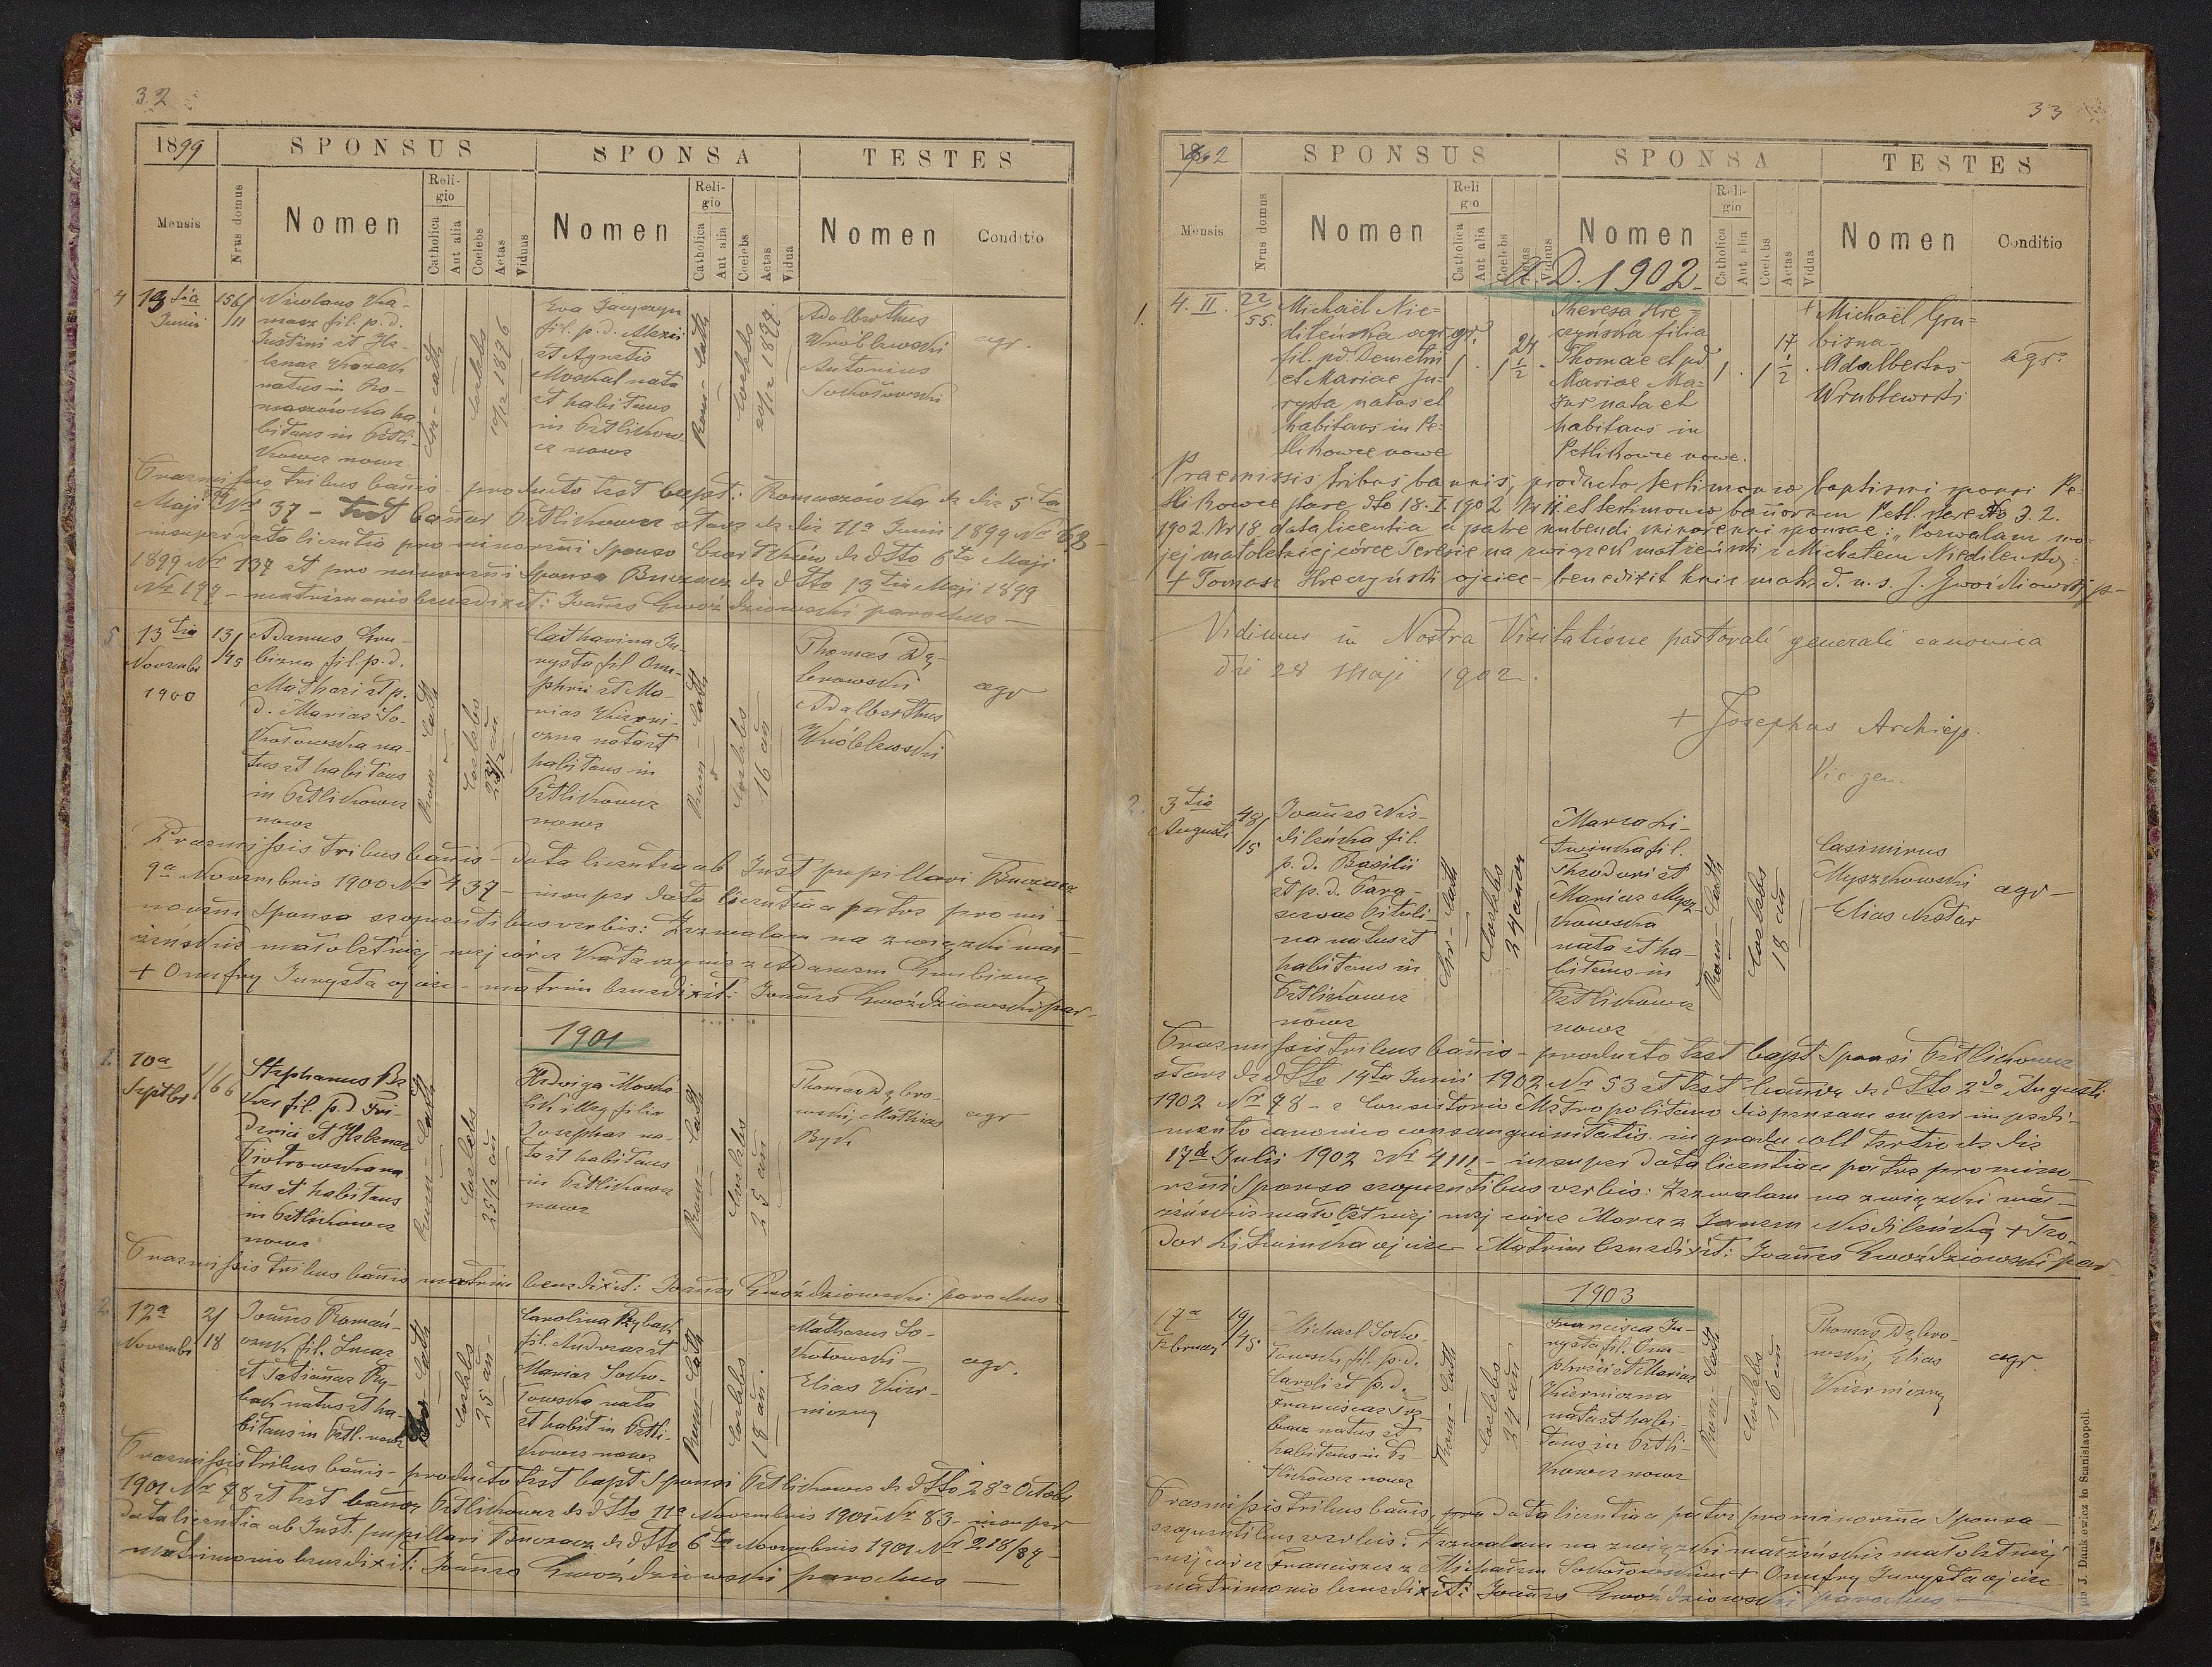 32
1899
SPONSUS
SPONSA
TESTES
Mensis
Nrus domus
Nomen
Religio
Catholica
Aut alia
Coelebs
Aetas
Viduus
Nomen
Religio
Catholica
Aut alia
Coelebs
Aetas
Vidua
Nomen
Conditio
4
13 tia
Junii
156/
/11
Nicolaus Kra-
masz fil. p. d.
Justini et He-
lenae
natus in Ro-
maszówka ha-
bitans in Petli-
kowce nowe
Gr - cath
Coelebs
Eva
fil. p. d. Alexii
et Agnetis
Moskal nata
et habitans
in Petlikow-
ce nowe
Rom - Cath
Coelebs
Adalberthus
Wróblewski
Antonius
Sokołowski
agr.
Praemissis tribus bañis producto test bapt: Romaszówka de die 5 ta
Maji 899 Nr 37 - test bañor Petlikowce stare de die 11a Junii 1899 Nr 63
insuper data licentia pro minoreñi Sponso Czortków de dSto 6 ta Maji
1899 Nr 137 et pro minoreñi Sponsa Buczacz de dSto 13 tia Maji 1899
Nr 197 - matrimonio benedixit: Joañes Gwoździowski parochus -
5
13 tia
Novembr
1900
13/
/45
Adamus Gru-
bizna fil. p. d.
Mathaei et p.
d. Mariae So-
kołowska na-
tus et habitans
in Petlikowce
nowe
Rom - Cath
Coelebs
23 1/2 añ
Catharina Ju-
rysta fil Onu-
phrii et Ma-
riae Kierni-
czna nata et
habitans in
Petlikowce
nowe
Rom - Cath
Coelebs
16 añ
Thomas Dą-
browski
Adalberthus
Wróblewski
agr
Praemissis tribus bañis - data licentia ab Inst pupillari Buczacz
9a Novembris 1900 Nr 437 - insuper data licentia a patre pro mi-
noreñi Sponsa sequentibus verbis: Zezwalam na związki mał-
żeńskie małoletniej mej córce Katarzyne z Adamem Grubizną
+ Onufry Jurysta ojciec - matrim benedixit: Joañes Gwoździowski par.
1901
1.
10a
Septbr
1/66
Stephanus Be
ker fil. p. d. Fri-
derici et Helenae
Piotrowska na
tus et habitans
in Petlikowce
nowe
Rom - Cath
Coelebs
25 1/2 añ
Hedviga Moska-
lik illeg filia
Josephae na-
ta et habitans
in Petlikowce
nowe
Rom - Cath
Coelebs
25 añ
Thomas Dąbro-
wski, Mathias
Byk
agr
Praemissis tribus bañis matrim benedixit: Joañes Gwoździowski parochus
2
12a
Novembr
2/
18
Joañes Román-
czuk fil. Lucae
et Tatiañae Ry-
bak natus et ha-
bitans in Petl. nowe
Cath
Coelebs
25 añ -
Carolina Rybak
fil. Andreae et
Mariae Soko-
łowska nata
et habit in Petli-
kowce nowe
Rom - Cath
Coelebs
18 añ.
Matheus So-
kołowski -
Elias Kier-
niczny
agr.
Praemissis tribus bañis - producto test bapt Sponsi Petlikowce de dSto 28a Octobr
1901 Nr 78 et test bañor Petlikowce de dSto 11a Novembris 1901 Nr 83 - insuper
data licentia ab Inst. pupillari Buczacz de dSto 6 ta Novembris 1901 Nr 218/84 -
matrimonio benedixit: Joañes Gwoździowski parochus -
33
1902
SPONSUS
SPONSA
TESTES
Mensis
Nrus domus
Nomen
Religio
Catholica
Aut alia
Coelebs
Aetas
Viduus
Nomen
Religio
Catholica
Aut alia
Coelebs
Aetas
Vidua
Nomen
Conditio
A. D. 1902.
1.
4. II.
22
55.
Michaël Nie-
dileńska agr.
fil. pd. Demetrii
et Mariae Ju-
rysta natus et
habitans in Pe-
tlikowce nowe
24
1/2
Theresa Hre-
czyńska filia
Thomae et pd
Mariae Ma-
zur nata et
habitans in
Petlikowce nowe.
17
1/2
+ Michaël Gru-
bizna-
Adalbertus
Wrublewski
agr.
Praemissis tribus bannis, producto testimonio baptismi sponsi Pe-
tlikowce stare dto 18. I. 1902 Nr 11 et testimonio bañorum Petl. stare dto 3. 2.
1902 Nr 18 data licentia a patre nubendi minorenni sponsae: „Pozwalam mo-
jej małoletniej córce Teresie na związek małżeński z Michałem Niedileńską:
+ Tomasz Hreczyński ojciec - benedixit huic matr. d. n. s. J. Gwoździowski p-
Vidimus in Nostra Visitatione pastorali generali canonica
die 28 Maji 1902.
+ Josephus Archiep.
Vic. gen.
2.
3 tia
Augusti
48/
/15
Joañes Nie-
dileńska fil.
p. d. Basilii
et p. d. Para-
scevae
na natus et
habitans in
Petlikowce
nowe
Gr - Cath
Coelebs
24 añor
Maria Li-
twinka fil.
Theodori et
Mariae Mysz-
kowska
nata et ha-
bitans in
Petlikowce
nowe
Rom - Cath
Coelebs
18 añ
Casimirus
Myszkowski
Elias Nestor
agr -
Praemissis tribus bañis - producto test bapt Sponsi Petlikowce
stare de dSto 14 ta Junii 1902 Nr 53 et test bañor de dSto 2 da Augusti
1902 Nr 78 - a Consistorio Metropolitano dispensam super impedi-
mento canonico consanguinitatis in gradu coll tertio de die
17a Julii 1902 Nr 4111 - insuper data licentia a patre pro mino-
reñi Sponsa sequentibus verbis: Zezwalam na związki mał-
żeńskie małoletniej mej córce Marii z Janem Niedileńską + Teo-
dor Litwinka ojciec - Matrim benedixit: Joañes Gwoździowski par
1903
17a
Februar
19/
/45
Michael Soko-
łowski fil. p. d.
Caroli et p. d.
Franciscae
natus et
habitans in Pe-
tlikowce nowe
Rom - Cath
Coelebs
24 añ
Francisca Ju-
rysta fil. Onu-
phrii et Mariae
Kierniczna
nata et habi-
tans in Petli-
kowce nowe
Rom - Cath
Coelebs
16 añ
Thomas Dąbro-
wski, Elias
Kierniczny
agr.
Praemissis tribus bañis, data licentia a patre pro minoreña Sponsa -
sequentibus verbis: Zezwalam na związki małżeńskie małoletniej
mej córce Franciszce z Michałem Sokołowskim + Onufry Jurysta ojciec
matrimonio benedixit: Joañes Gwoździowski parochus -
J. Dankiewicz in Stanislaopoli.